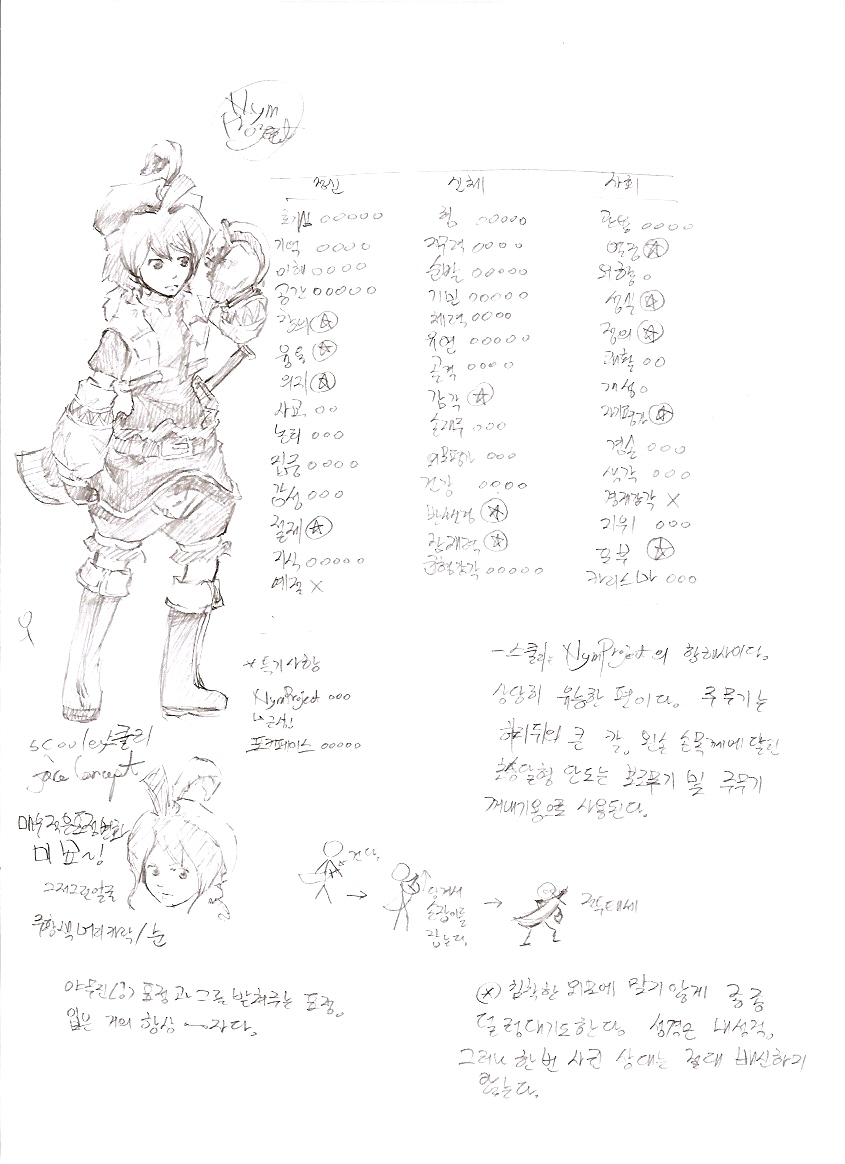 Nym
Project
정신 신체 사회
호기심 ○○○○○
기억 ○○○○
이해 ○○○○
공간 ○○○○○
창의 ☆
응용 ☆
의지 ☆
사교 ○○
논리 ○○○
집중 ○○○○
감성 ○○○
절제 ☆
지식 ○○○○○
예절 ×
힘 ○○○○○
근력 ○○○○
순발 ○○○○○
기민 ○○○○○
체력 ○○○○
유연 ○○○○○
골격 ○○○○
감각 ☆
손재주 ○○○
외모평가 ○○○
건강 ○○○○
반사신경 ☆
잠재력 ☆
균형감각 ○○○○○
관념 ○○○○
열정 ☆
외향 ○
성실 ☆
정의 ☆
쾌활 ○○
개성 ○
자기평가 ☆
겸손 ○○○
생각 ○○○
경제감각 ×
지위 ○○○
포부 ☆
카리스마 ○○○
* 특기사항
NymProject ○○○
근성
포커페이스 ○○○○○
- 스쿨리는 NymProject의 항해사이다.
상당히 유능한 편이다. 주무기는
허리뒤의 큰 칼. 왼쪽 손목께에 달린
초승달형 단도는 보조무기 및 주무기
꺼내기용으로 사용된다.
scouley스쿨리
face Concept
매우 적은 표정변화
그저그런얼굴
주황색 머리카락/눈
건다.
당겨서
손잡이를
잡는다.
전투태세
야무진(?) 표정과 그를 받쳐주는 표정.
입은 거의 항상 ㅡ자다.
* 침착한 외모에 맞지않게 종종
덜렁대기도한다. 성격은 내성적,
그러나 한번 사귄 상대는 절대 배신하지
않는다.